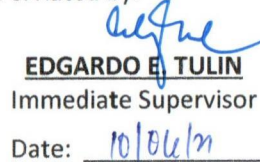 EDGARDO E. TULIN
Immediate Supervisor
Date: 10/06/21